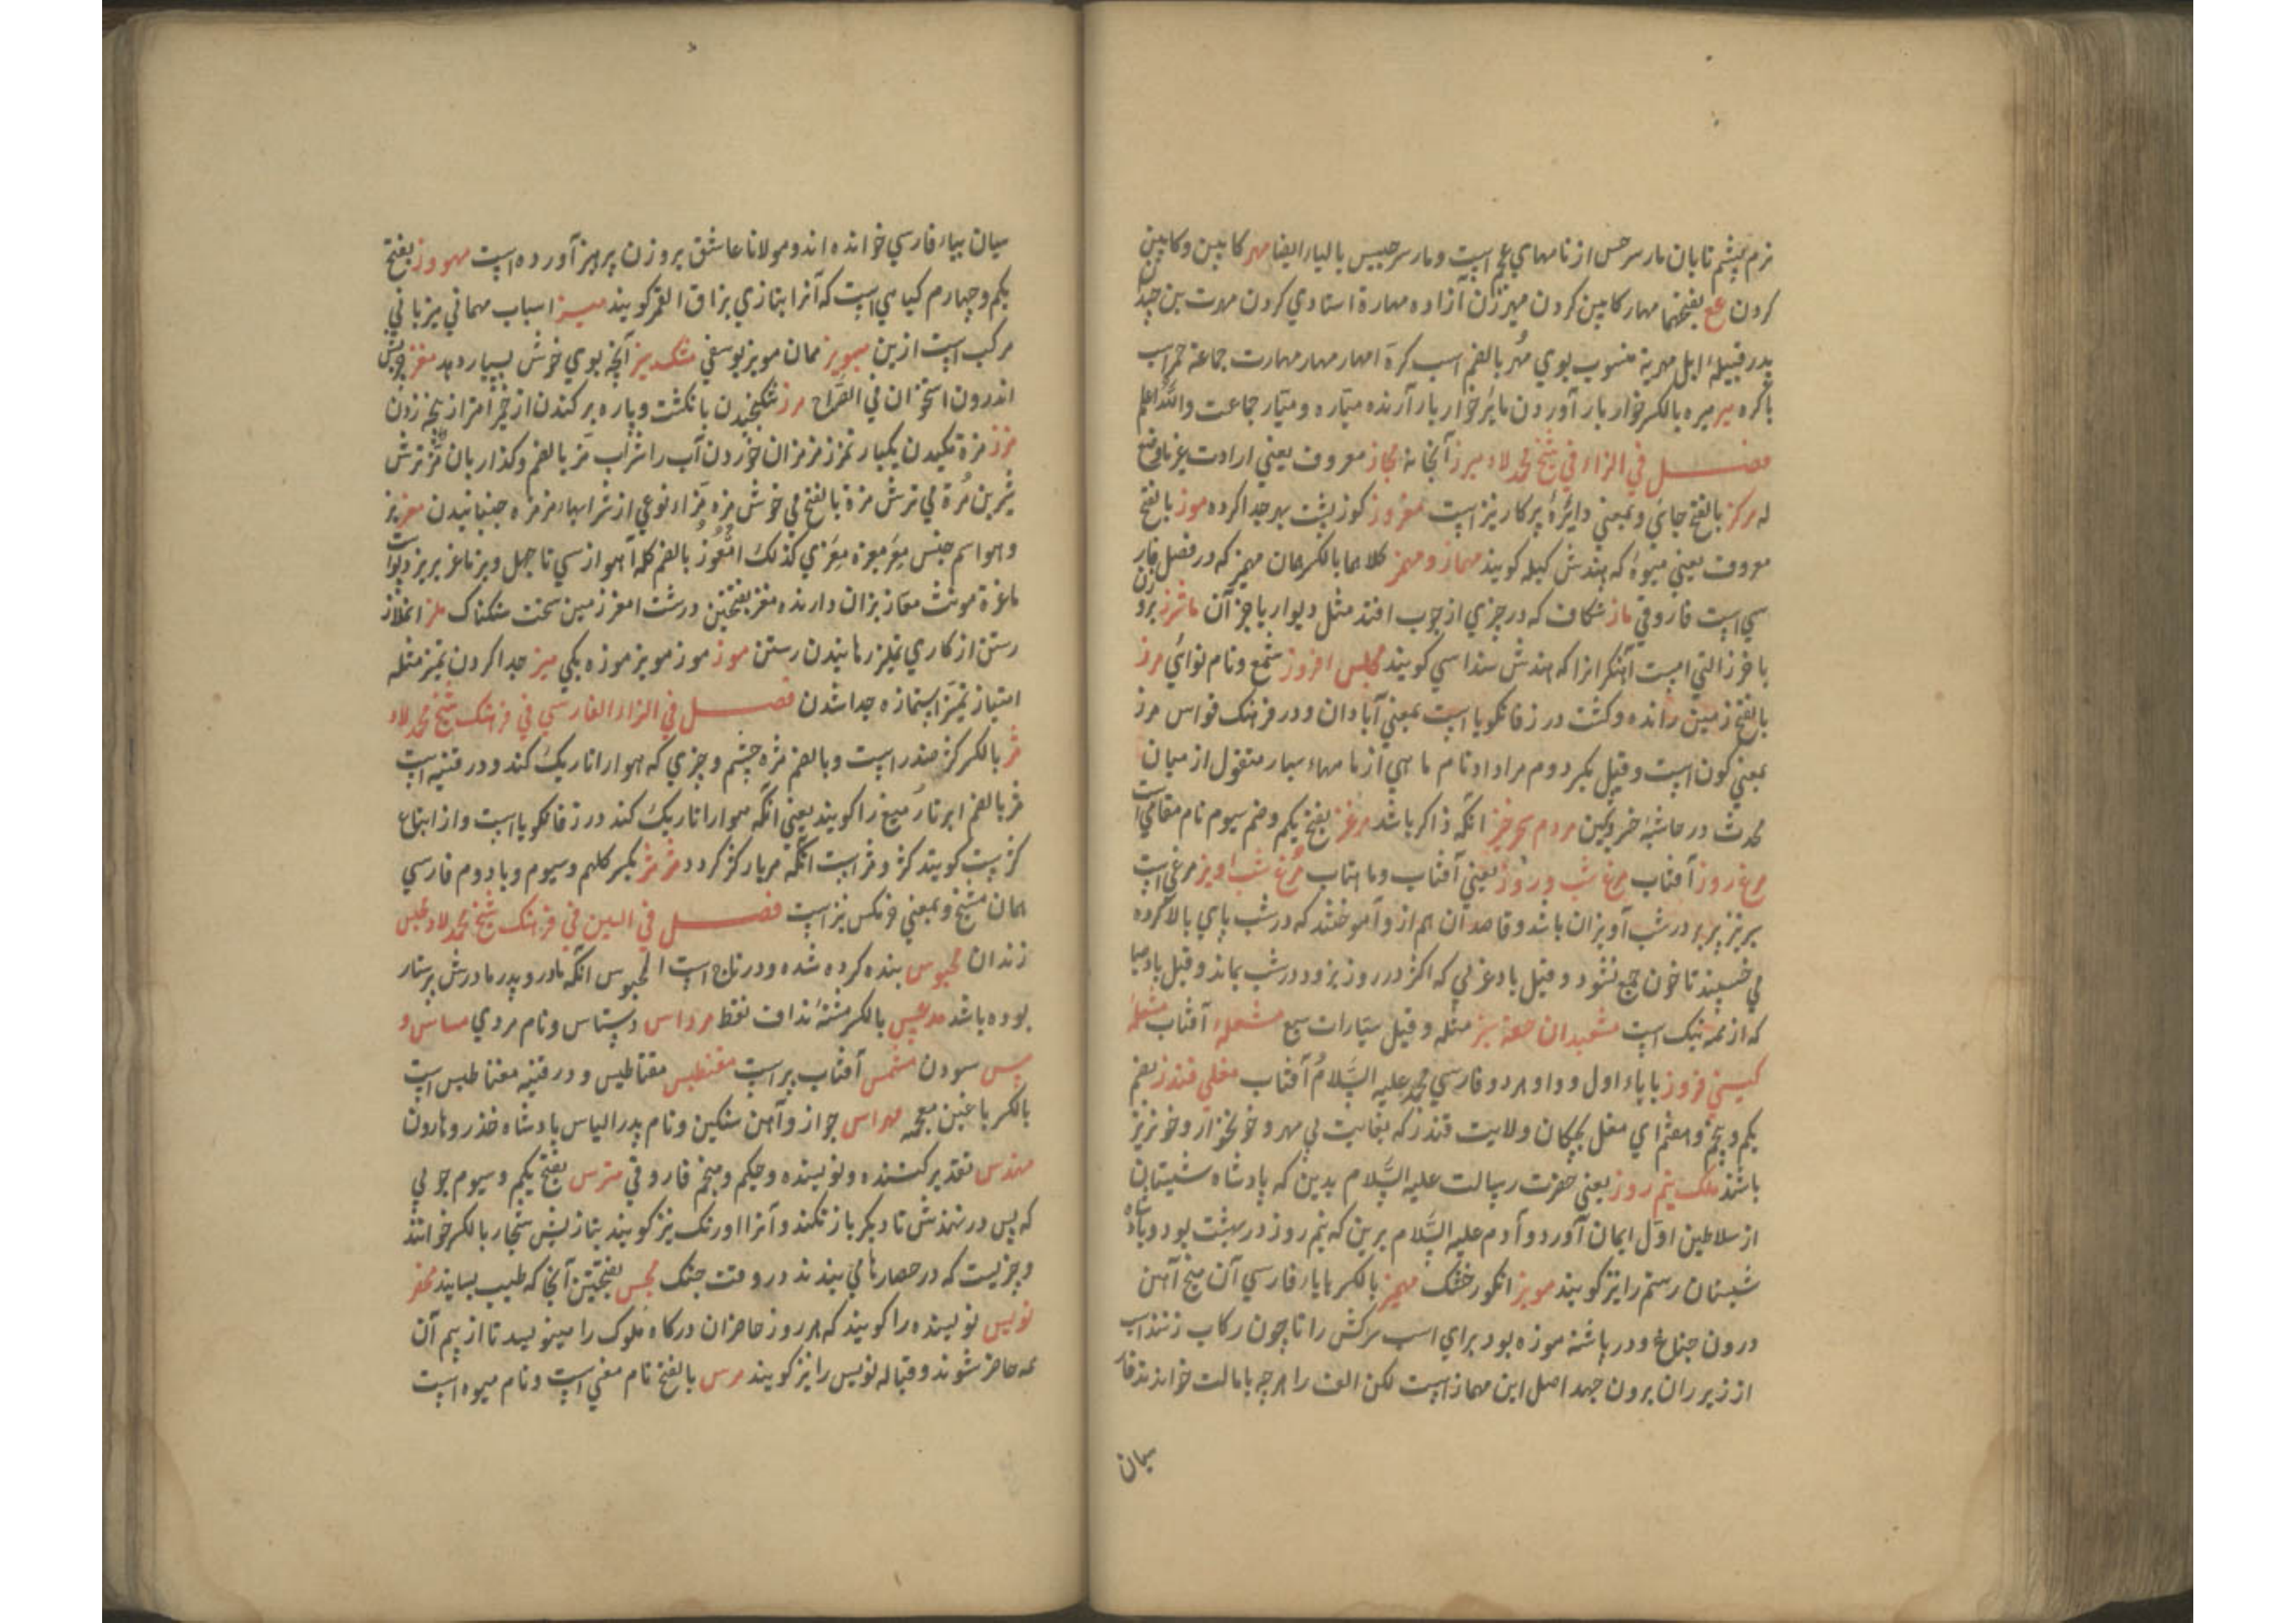 نرم پشم تابان مار سرحس از نامهای عجم است و مار سرجیس بالیاء ایضا مهر کابین و کابین
کردن مع بفتحتها مهار کابین کردن مهیرة زن آزاده مهارة استادی کردن مهرت بن حیدان
پدر قبیلۀ ابل مهریة منسوب بوی مهر بالضم اسب کرة امهار مهار مهارت جماعة
با کره میر میره بالکسر خوار بار آوردن مایر خوار بار آرنده میّاره و میّار جماعت والله اعلم
فصل فی الزاء فی شیخ محمد لاد مبرز آبخانه مجاز معروف یعنی ارادت غیر ما وضع
له مرکز بالفتح جای و بمعنی دایرۀ پرکار نیز است مفروز کوز پشت جدا کرده موز بالفتح
معروف یعنی میوۀ که بهندش کیله کویند مهماز و مهمز کلاهما بالکسر همان مهمیز که در فصل فار
سی است فاروقی ماز شکاف که در چیزی از چوب افتد مثل دیوار یا جز آن ماترز بر وزن
با غرز التی است آهنکرانرا که بهندش سنداسی کویند مجلس افروز شمع و نام نوائی مرز
بالفتح زمین رانده و کشت در زفانکویا است بمعنی آبادان و در فرهنک قواس مرز
بمعنی کون است و قیل بکسر دوم مرداد نام ماهی از ماههاء سیار منقول از میان
محدث در حاشیۀ خر وبحین مردم سحرخیز انکه ذاکر باشد مرغز بفتح یکم و ضم سیوم نام مقامی است
مرغ روز آفتاب مرغ شب و روز یعنی آفتاب و ماهتاب مرغ شب آویز مرغی است
سر نیز پر در شب آویزان باشد و قاصدان هم از و آموختند که در شب پای بالا کرده
می خسپند تا خون جمع نشود و قیل باد غزلی که اکثر در روز بزود در شب بماند و قیل باد صبا
که از همه نیک است مشعبدان حقه بیز مثله و قیل سیّارات سبع مشعلۀ آفتاب مشعلۀ
کیتی فروز با یاء اول و واو هر دو فارسی محمد علیه السّلام آفتاب مغلی قندز بضم
یکم و پنجم و هشتم ای مغل بچکان ولایت قندز که بغایت بی مهر و خونخوار و خونریز
باشند ملک نیم روز یعنی حضرت رسالت علیه السّلام بدین که پادشاه شیستان
از سلاطین اوّل ایمان آورد و آدم علیه السّلام برین که نیم روز در بهشت بود و پادشاه
شیستان رستم را نیز کویند مویز انکور خشک مهمیز بالکسر با یاء فارسی آن میخ آهن
درون جناغ و در پاشنه موزه بود برای اسب سرکش را تا چون رکاب زنند اسب
از زیر ران برون جهد اصل این مهماز است لکن الف را هر چه بامالت خوانند فار
سیان
سیان بیاء فارسی خوانده اند و مولانا عاشق بر وزن پرهیز آورده است مهموز بفتح
یکم و چهارم کیاهی است که آنرا بتازی بزاق القمر کویند میز اسباب مهمانی میزبانی
مرکب است ازین میویز همان مویز یوسفی مشکبیز آنچه بوی خوش بسیار دهد مغز
اندرون استخوان فی القراح مرز شکنجیدن بانکشت و پاره بر کندن از خمیر امتراز پنجه زدن
مزز مزة مکیدن یکبار تمزز مزمزان خوردن آب را شراب مزّ بالضم و کذا رمان مزّ ترش
شیرین مزة می ترش مزة بالفتح می خوش مزه مزّاء نوعی از شرابهاء مزمزه جنبانیدن معز بز
و هو اسم جنس معز معزة معزی کذلک امعوز بالضم کلۀ آهو از سی تا چهل و بز ماعز بریز ذوات
ماعزة مونث معاز بزان دارنده معز بفتحتین درشت امعز زمین سخت سنکناک ملز انملاز
رستن از کاری تملیز رهانیدن رستن موز موز مویز موزه یکی میز جدا کردن تمییز مثله
امتیاز تمیّز استمازه جدا شدن فصل فی الزاء الفارسی فی فرهنک شیخ محمد لاد
مژ بالکسر کژ مندر است و بالضم مژه چشم و چیزی که هوا را تاریک کند و در قنیه است
مژ بالضم ابر تار میغ را کویند یعنی انکه هوا را تاریک کند در زفانکویا است و از اتباع
کژ است کویند کژ و مژ است انکه هر بار کژ کردد مژمژ بکسر کلهم و سیوم و با دوم فارسی
همان مسیخ و بمعنی خرمکس نیز است فصل فی السین فی فرهنک شیخ محمد لاد محبس
زندان محبوس بنده کرده شده و در تاج است المحبوس انکه مادر و پدر مادرش پرستار
بوده باشد مدقس بالکسر مشتۀ نداف نفط مرداس دستاس و نام مردی مساس و
مس سودن مشمس آفتاب پر است مغنطیس مقناطیس و در قنیه مغناطیس است
بالکسر با غین معجمه مهراس جواز و آهن سنکین و نام پدر الیاس پادشاه خذر و هارون
مهندس تقدیر کننده و نویسنده و حکیم و منجم فاروقی مترس بفتح یکم و سیوم چوبی
که پس در نهندش تا دیکر باز نکند و آنرا اورنک نیز کویند بتازیش سنجار بالکسر خوانند
و چیزیست که در حصارها می بندند در وقت جنک مجس بفتحتین آنجا که طبیب بساید محضر
نویس نویسنده را کویند که هر روز حاضران درکاه ملوک را مینویسد تا از بیم آن
همه حاضر شوند و قباله نویس را نیز کویند مرس بالفتح نام مغی است و نام میوه است